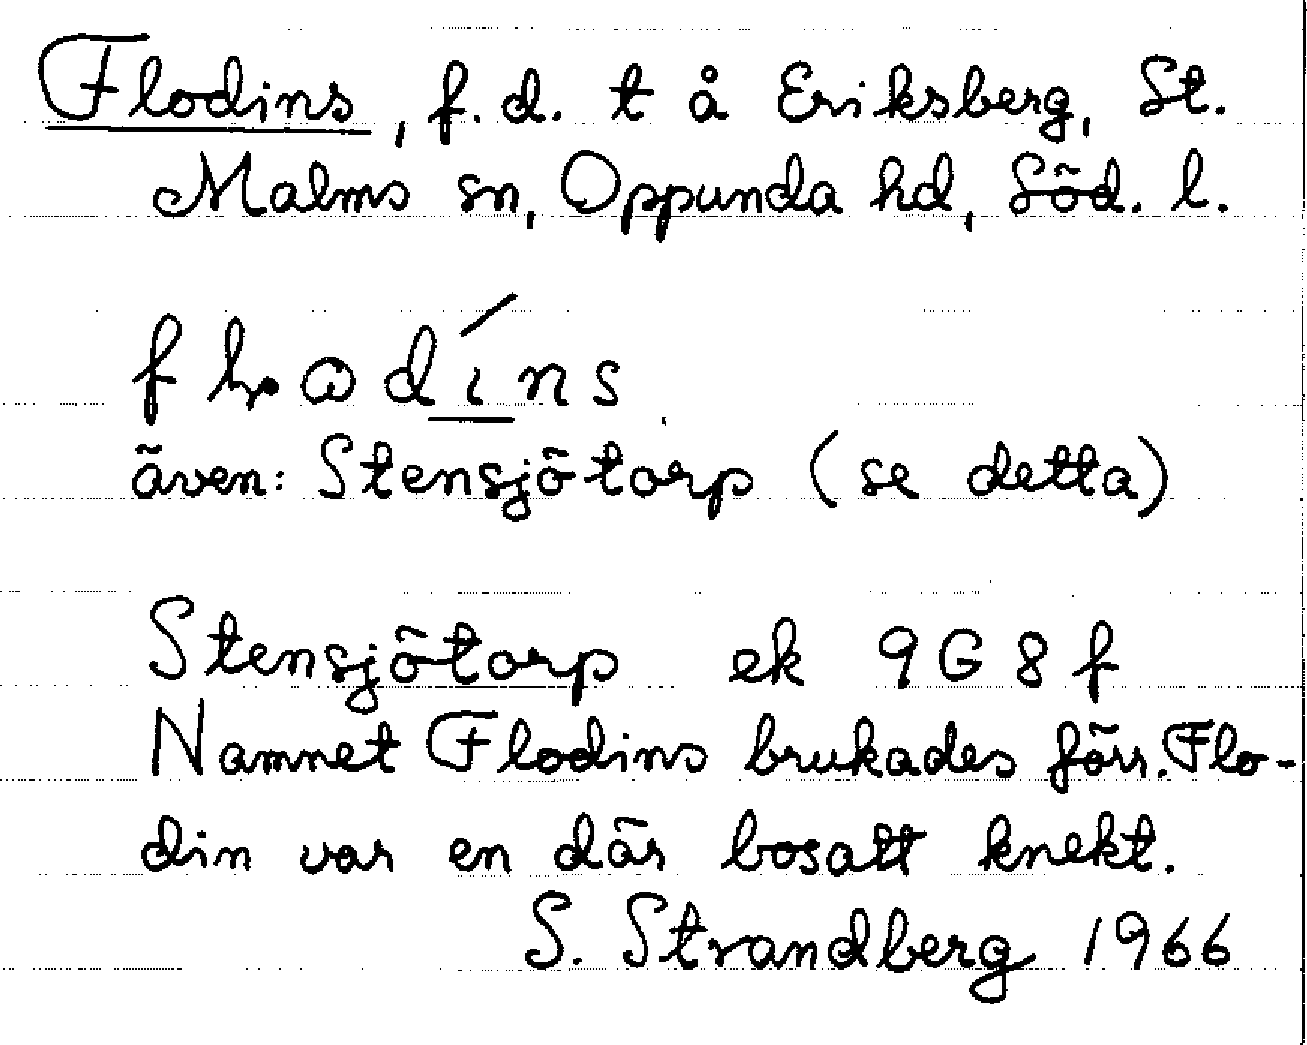 Flodins, f.d. t å Eriksberg, St.
Malms sn, Oppunda hd, Söd. l.
även: Stensjötorp (se detta)
Stensjötorp ek 9G8f
Namnet Flodins brukades förr. Flo-
din var en där bosatt knekt.
S. Strandberg 1966